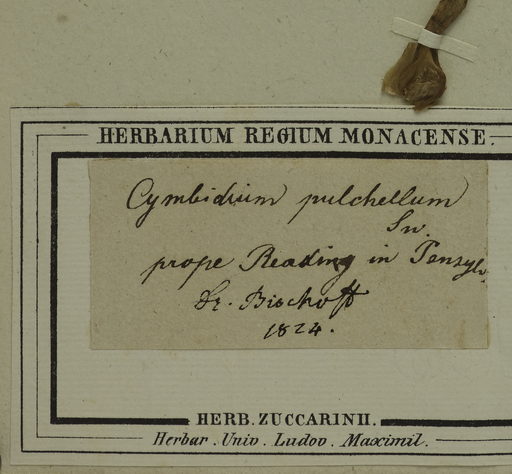 HERBARIUM REGIUM MONACENSE.
Cymbidium pulchellum
Sw.
prope Reading in Pensylv.
Dr. Bischoff
1824.
HERB. ZUCCARINII.
Herbar. Univ. Ludov. Maximil.